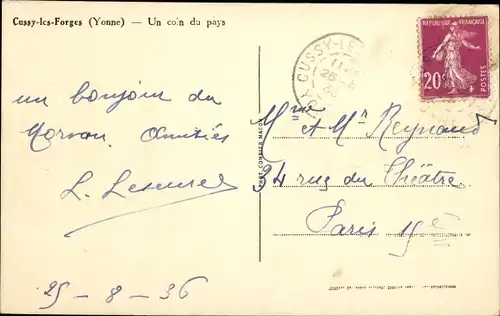 Cussy-les-Forges (Yonne) — Un coin du pays
CUSSY-LES
25
RÉPUBLIQUE FRANÇAISE
20c
POSTES
un bonjour du
Morvan. Amitiés
L.
25 - 8 - 36
Mme et Mr Reynaud
34 rue du Théâtre
Paris 15e